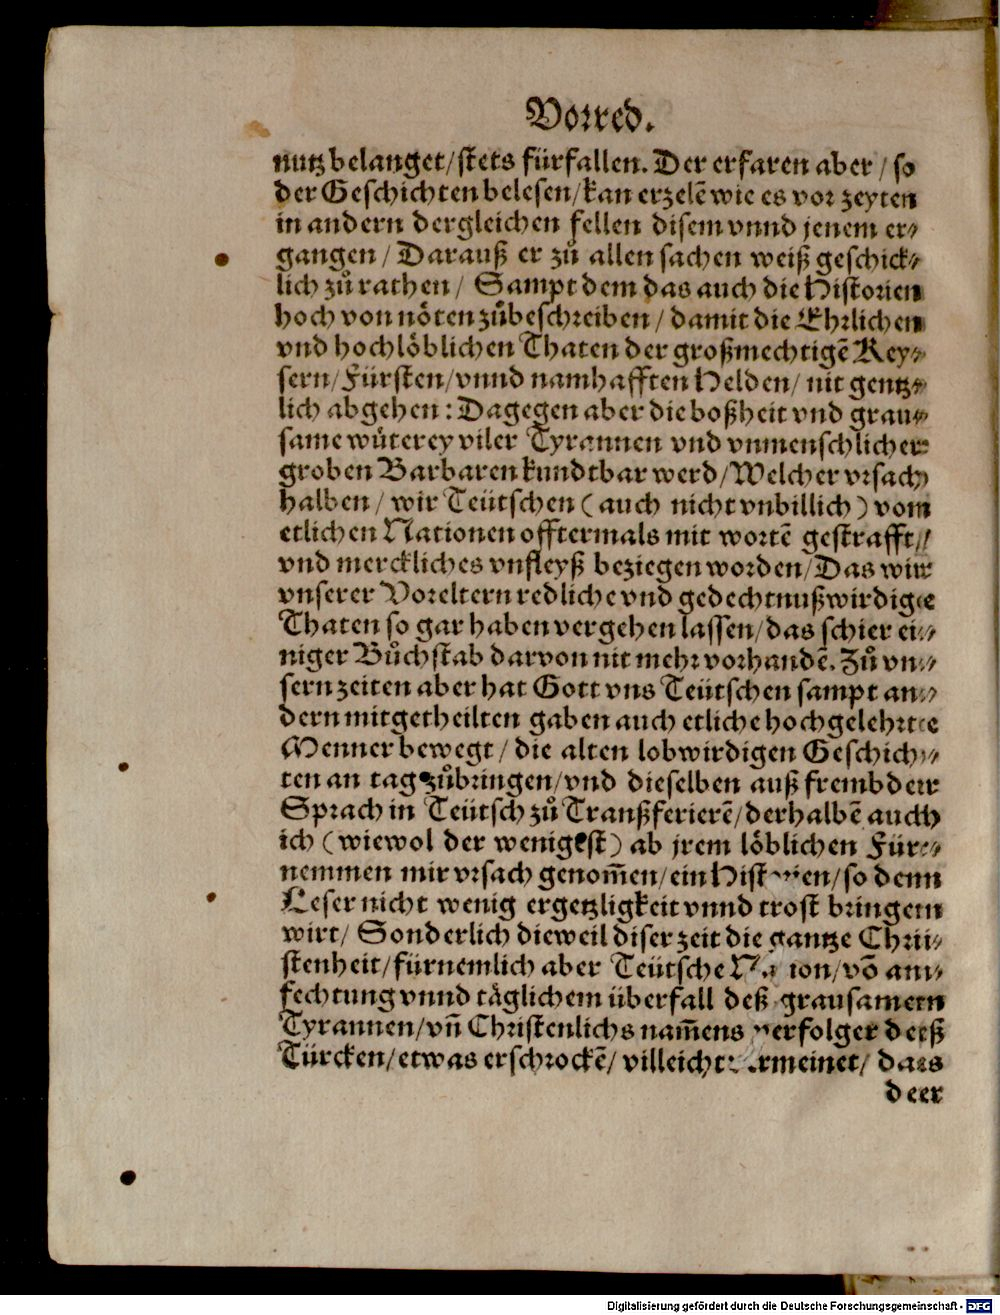 Vorred.
nutz belanget/ stets fürfallen. Der erfaren aber / so
der Geschichten belesen/ kan erzelē wie es vor zeyten
in andern dergleichen fellen disem vnnd jenem er⸗
gangen / Darauß er zů allen sachen weiß geschick⸗
lich zů rathen / Sampt dem das auch die Historien
hoch von nöten zůbeschreiben / damit die Ehrlichen
vnd hochlöblichen Thaten der großmechtigē Key⸗
sern/ Fürsten/ vnnd namhafften Helden/ nit gentz⸗
lich abgehen : Dagegen aber die boßheit vnd grau⸗
same wüterey viler Tyrannen vnd vnmenschlicher
groben Barbaren kundtbar werd/ Welcher vrsach
halben / wir Teütschen ( auch nicht vnbillich ) vom
etlichen Nationen offtermals mit wortē gestrafft/
vnd merckliches vnfleyß beziegen worden/ Das wir
vnserer Voreltern redliche vnd gedechtnußwirdige
Thaten so gar haben vergehen lassen/ das schier ei⸗
niger Bůchstab darvon nit mehr vorhandē. Zů vn⸗
sern zeiten aber hat Gott vns Teütschen sampt an⸗
dern mitgetheilten gaben auch etliche hochgelehrte
Menner bewegt / die alten lobwirdigen Geschich⸗
ten an tag zůbringen/ vnd dieselben auß frembder
Sprach in Teütsch zů Tranßferierē/ derhalbē auch
ich ( wiewol der wenigest ) ab jrem löblichen Für⸗
nemmen mir vrsach genom̄en/ ein Historien/ so denn
Leser nicht wenig ergetzligkeit vnnd trost bringen
wirt/ Sonderlich dieweil diser zeit die gantze Chri⸗
stenheit/ fürnemlich aber Teütsche Nation/ vō an⸗
fechtung vnnd täglichem überfall deß grausamen
Tyrannen/ vn̄ Christenlichs nam̄ens verfolger deß
Türcken/ etwas erschrockē/ villeicht vermeinet/ das
der
Digitalisierung gefördert durch die Deutsche Forschungsgemeinschaft - DFG